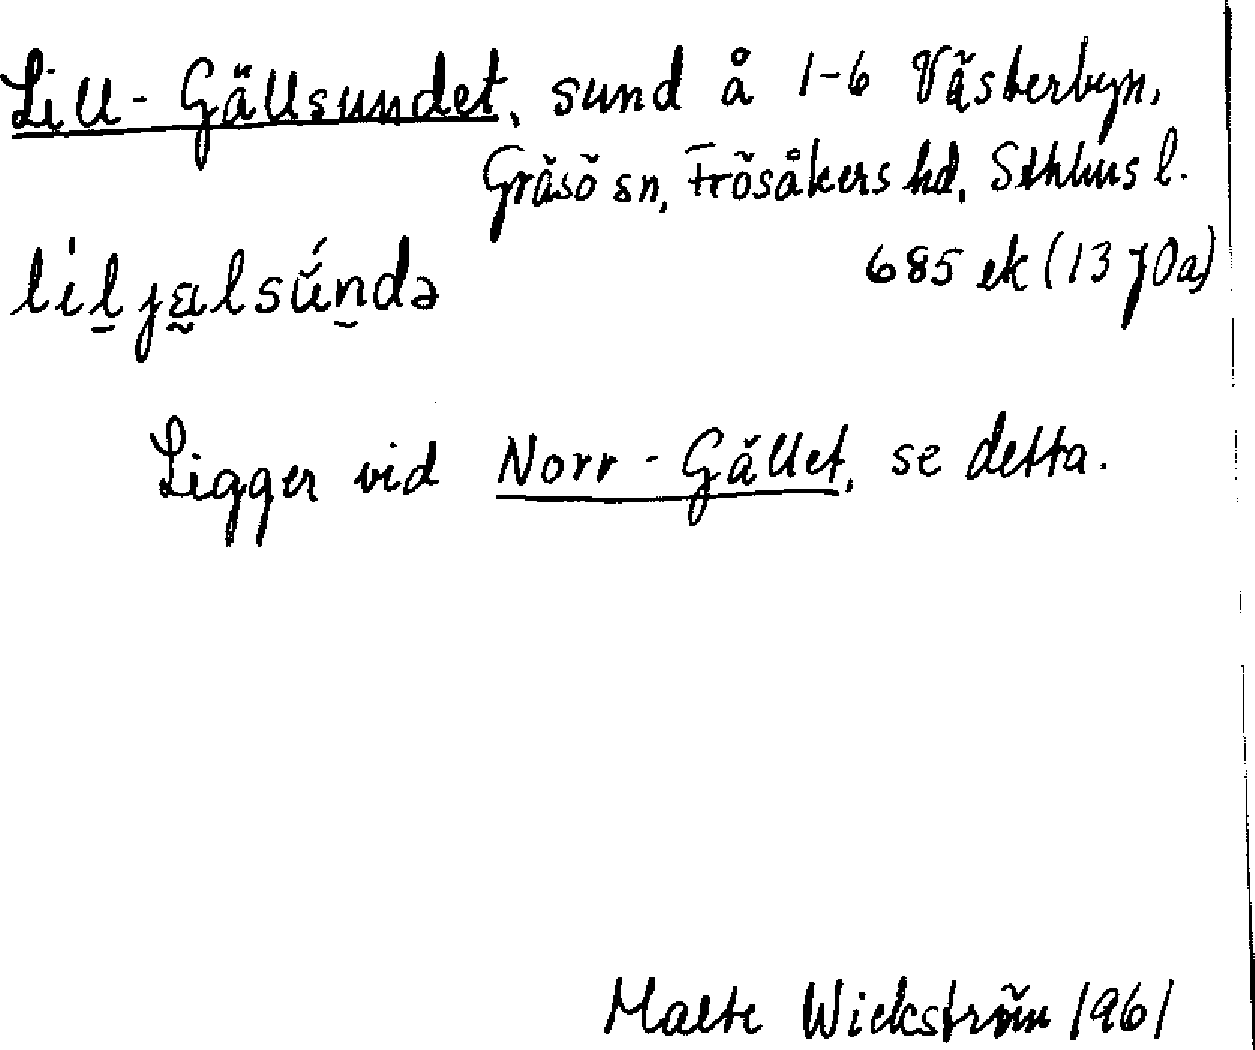 Lill-Gällsundet, sund å 1-6 Västerbyn,
Gräsö sn, Frösåkers hd, Sthlms l.
685 ek (13 J 0a)
Ligger vid Norr-Gället, se detta.
Malte Wickström 1961